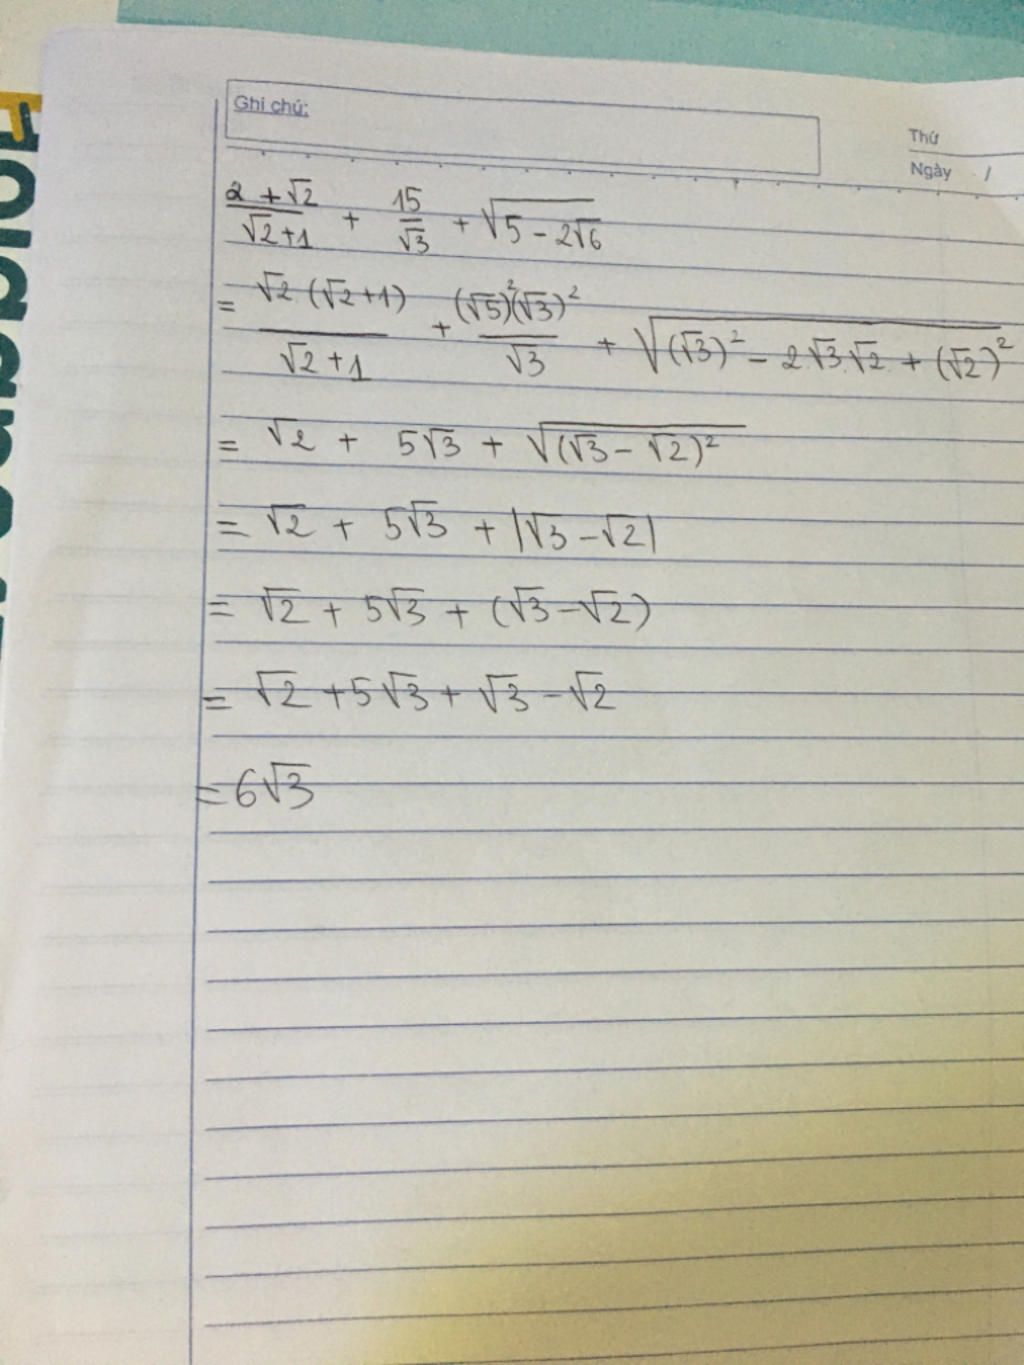 Ghi chú:
Thứ
Ngày /
(2 + √2)/(√2+1) + 15/√3 + √(5 - 2√6)
= (√2.(√2+1))/(√2+1) + ((√5)²(√3)²)/√3 + √((√3)² - 2.√3.√2 + (√2)²)
= √2 + 5√3 + √((√3 - √2)²)
= √2 + 5√3 + |√3 - √2|
= √2 + 5√3 + (√3 - √2)
= √2 + 5√3 + √3 - √2
= 6√3